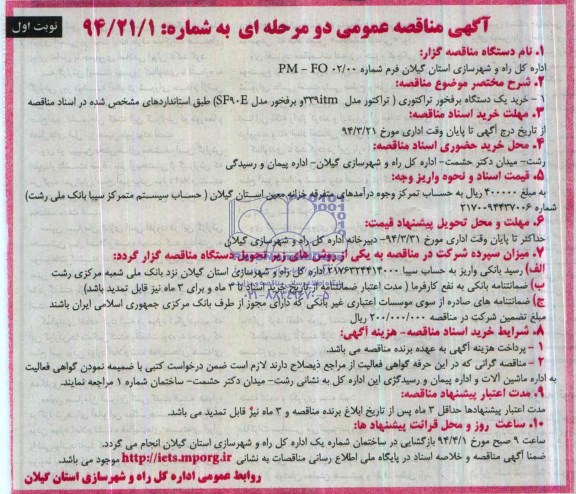 نوبت اول
آگهی مناقصه عمومی دو مرحله ای به شماره: ۹۴/۲۱/۱
۱. نام دستگاه مناقصه گزار:
اداره کل راه و شهرسازی استان گیلان فرم شماره PM - FO ۰۲/۰۰
۲. شرح مختصر موضوع مناقصه:
۱ - خرید یک دستگاه برفخور تراکتوری ( تراکتور مدل ۳۳۹itm و برفخور مدل SF۹۰E) طبق استانداردهای مشخص شده در اسناد مناقصه
۳. مهلت خرید اسناد مناقصه:
از تاریخ درج آگهی تا پایان وقت اداری مورخ ۹۴/۳/۲۱
۴. محل خرید حضوری اسناد مناقصه:
رشت- میدان دکتر حشمت- اداره کل راه و شهرسازی گیلان- اداره پیمان و رسیدگی
۵. قیمت اسناد و نحوه واریز وجه:
به مبلغ ۴۰۰۰۰۰ ریال به حساب تمرکز وجوه درآمدهای متفرقه خزانه معین استان گیلان ( حساب سیستم متمرکز سیبا بانک ملی رشت)
شماره ۲۱۷۰۰۹۴۴۳۷۰۰۶
۶. مهلت و محل تحویل پیشنهاد قیمت:
حداکثر تا پایان وقت اداری مورخ ۹۴/۳/۳۱- دبیرخانه اداره کل راه و شهرسازی گیلان
۷. میزان سپرده شرکت در مناقصه به یکی از روش های زیر تحویل دستگاه مناقصه گزار گردد:
الف) رسید بانکی واریز به حساب سیبا ۲۱۷۶۳۲۴۴۱۴۰۰۰ اداره کل راه و شهرسازی استان گیلان نزد بانک ملی شعبه مرکزی رشت
ب) ضمانتنامه بانکی به نفع کارفرما ( مدت اعتبار ضمانتنامه از تاریخ خرید اسناد تا ۳ ماه و برای ۳ ماه نیز قابل تمدید باشد)
ج) ضمانتنامه های صادره از سوی موسسات اعتباری غیر بانکی که دارای مجوز از طرف بانک مرکزی جمهوری اسلامی ایران باشند
مبلغ تضمین شرکت در مناقصه ۲۰۰/۰۰۰/۰۰۰ ریال
۸. شرایط خرید اسناد مناقصه- هزینه آگهی:
۱ - پرداخت هزینه آگهی به عهده برنده مناقصه می باشد.
۲ - مناقصه گرانی که در این حرفه گواهی فعالیت از مراجع ذیصلاح دارند لازم است ضمن درخواست کتبی با ضمیمه نمودن گواهی فعالیت
به اداره ماشین آلات و اداره پیمان و رسیدگزی این اداره کل به نشانی رشت- میدان دکتر حشمت- ساختمان شماره ۱ مراجعه نمایند.
۹. مدت اعتبار پیشنهاد مناقصه:
مدت اعتبار پیشنهادها حداقل ۳ ماه پس از تاریخ ابلاغ برنده مناقصه و ۳ ماه نیز قابل تمدید می باشد.
۱۰. ساعت روز و محل قرائت پیشنهاد ها:
ساعت ۹ صبح مورخ ۹۴/۴/۱ بازگشایی در ساختمان شماره یک اداره کل راه و شهرسازی استان گیلان انجام می گردد.
ضمنا آگهی مناقصه و خلاصه اسناد در پایگاه ملی اطلاع رسانی مناقصات به نشانی http://iets.mporg.ir موجود می باشد.
روابط عمومی اداره کل راه و شهرسازی استان گیلان
۰۲۱-۸۸۳۴۹۶۷۰-۵